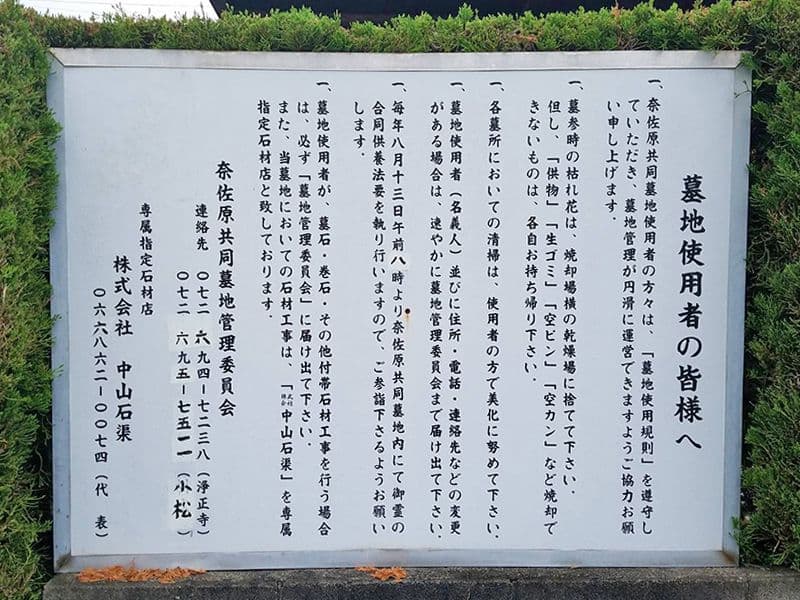 墓地使用者の皆様へ
一、奈佐原共同墓地使用者の方々は、「墓地使用規則」を遵守し
ていただき、墓地管理が円滑に運営できますようご協力お願
い申し上げます。
一、墓参時の枯れ花は、焼却場横の乾燥場に捨てて下さい。
但し、「供物」「生ゴミ」「空ビン」「空カン」など焼却で
きないものは、各自お持ち帰り下さい。
一、各墓所においての清掃は、使用者の方で美化に努めて下さい。
一、墓地使用者（名義人）並びに住所・電話・連絡先などの変更
がある場合は、速やかに墓地管理委員会まで届け出て下さい。
一、毎年八月十三日午前八時より奈佐原共同墓地内にて御霊の
合同供養法要を執り行いますので、ご参詣下さるようお願い
します。
一、墓地使用者が、墓石・巻石・その他付帯石材工事を行う場合
は、必ず「墓地管理委員会」に届け出て下さい。
また、当墓地においての石材工事は、「株式会社中山石渠」を専属
指定石材店と致しております。
奈佐原共同墓地管理委員会
連絡先 〇七二 六九四ー七二三八（浄正寺）
〇七二 六九五ー七五一一（小松）
専属指定石材店
株式会社 中山石渠
〇六六八六二ー〇〇七四（代 表）